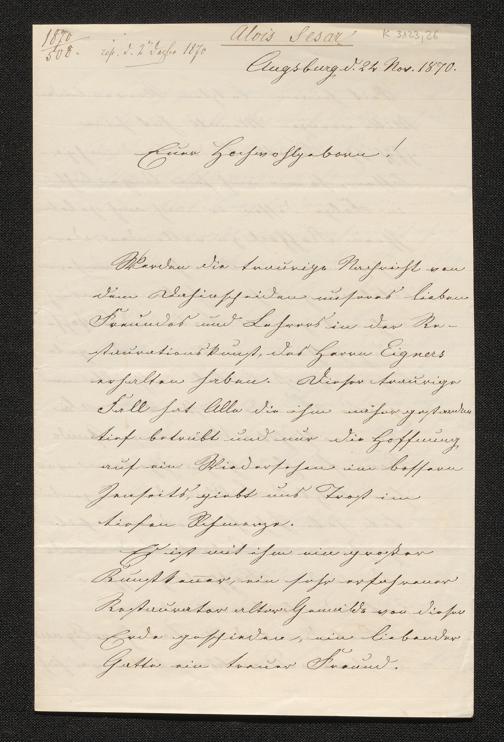 1870
508.
rsp. d. 2ten Dezbr 1870
Alois Sesar
K 3123,26
Augsburg, d. 24 Nov. 1870.
Euer Hochwohlgeborn!
Werden die traurige Nachricht von
dem Dahinscheiden unseres lieben
Freundes und Lehrers in der Re-
staurationskunst, des Herrn Eigners
erhalten haben. Dieser traurige
Fall hat Alle die ihm näher gestanden
tief betrübt und nur die Hoffnung
auf ein Wiedersehen im bessern
Jenseits, giebt uns Trost im
tiefen Schmerze.
Es ist mit ihm ein großer
Kunstkenner, ein sehr erfahrener
Restaurator alter Gemälde von dieser
Erde geschieden, ein liebender
Gatte ein treuer Freund.